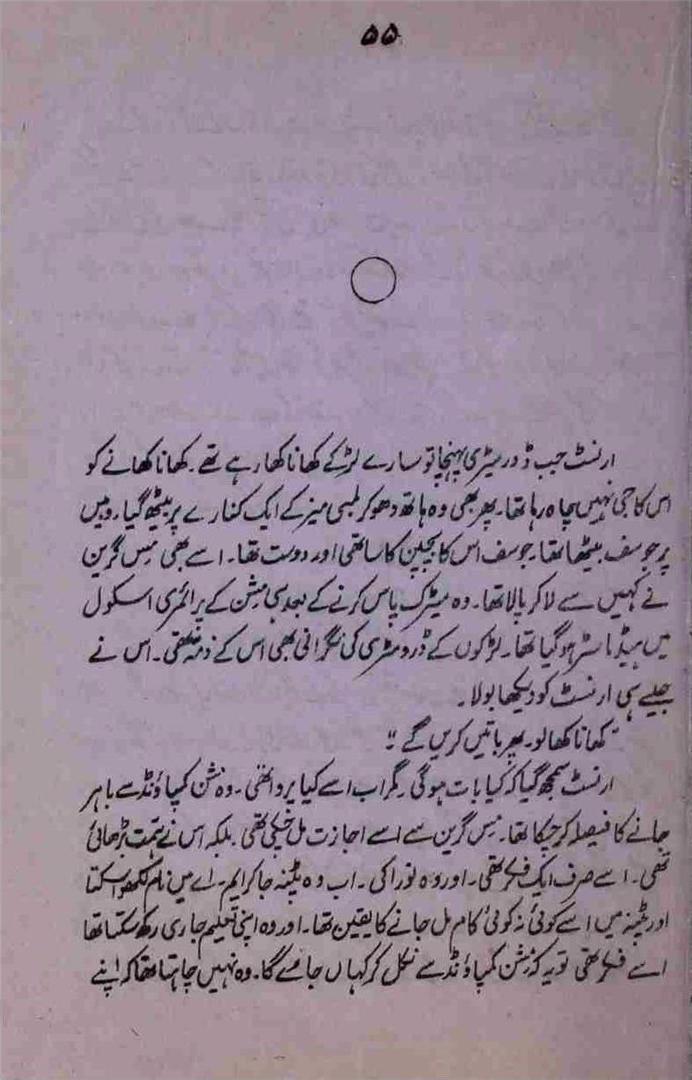 ۵۵
ارنسٹ جب ڈورمیٹری پہنچا تو سارے لڑکے کھانا کھا رہے تھے۔ کھانا کھانے کو
اس کا جی نہیں چاہ رہا تھا۔ پھر بھی وہ ہاتھ دھو کر لمبی میز کے ایک کنارے پر بیٹھ گیا۔ وہیں
پر جوسف بیٹھا تھا۔ جوسف اس کا بچپن کا ساتھی اور دوست تھا۔ اسے بھی مِس گرین
نے کہیں سے لا کر پالا تھا۔ وہ میٹرک پاس کرنے کے بعد ہی مِشن کے پرائمری اسکول
میں ہیڈ ماسٹر ہو گیا تھا۔ لڑکوں کے ڈرومٹری کی نگرانی بھی اس کے ذمہ تھی۔ اس نے
جیسے ہی ارنسٹ کو دیکھا بولا۔
"کھانا کھا لو۔ پھر باتیں کریں گے"
ارنسٹ سمجھ گیا کہ کیا بات ہو گی۔ مگر اب اسے کیا پروا تھی۔ وہ مشن کمپاؤنڈ سے باہر
جانے کا فیصلہ کر چکا تھا۔ مِس گرین سے اسے اجازت مل چکی تھی۔ بلکہ اس نے ہمّت بڑھائی
تھی۔ اسے صرف ایک فکر تھی۔ اور وہ نورا کی۔ اب وہ پٹنہ جا کر ایم۔ اے میں نام لکھوا سکتا
اور پٹنہ میں اسے کوئی نہ کوئی کام مل جانے کا یقین تھا۔ اور وہ اپنی تعلیم جاری رکھ سکتا تھا
اسے فکر تھی تو یہ کہ مِشن کمپاؤنڈ سے نکل کر کہاں جائے گا۔ وہ نہیں چاہتا تھا کہ اپنے